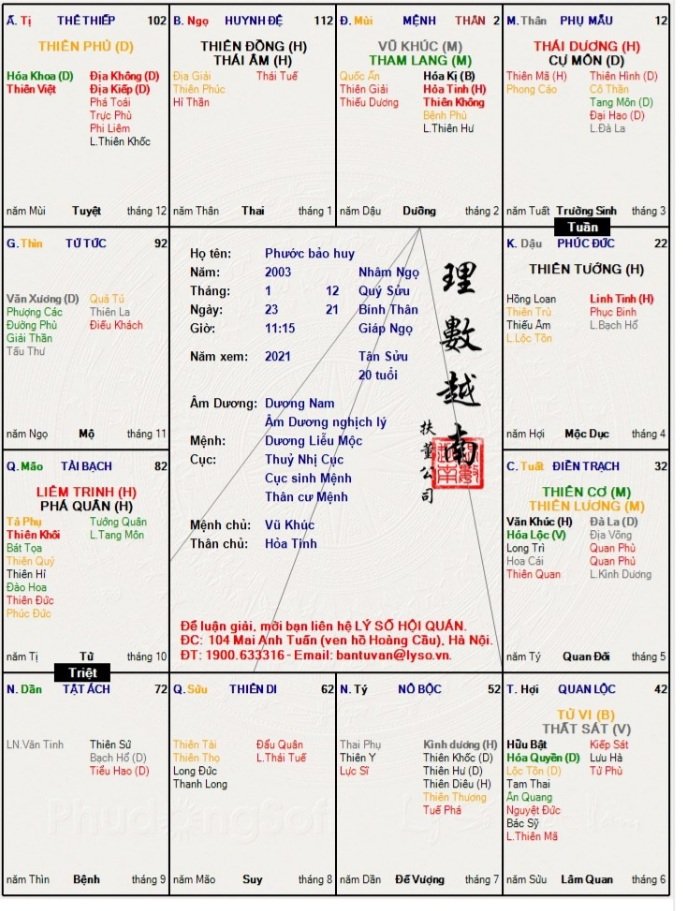 Ấ. Tị THÊ THIẾP 102
THIÊN PHỦ (D)
Hóa Khoa (D) Địa Không (D)
Thiên Việt Địa Kiếp (D)
Phá Toái
Trực Phù
Phi Liêm
L.Thiên Khốc
năm Mùi Tuyệt tháng 12
B. Ngọ HUYNH ĐỆ 112
THIÊN ĐỒNG (H)
THÁI ÂM (H)
Địa Giải Thái Tuế
Thiên Phúc
Hỉ Thần
năm Thân Thai tháng 1
Đ. Mùi MỆNH THÂN 2
VŨ KHÚC (M)
THAM LANG (M)
Quốc Ấn Hóa Kị (B)
Thiên Giải Hỏa Tinh (H)
Thiếu Dương Thiên Không
Bệnh Phù
L.Thiên Hư
năm Dậu Dưỡng tháng 2
M. Thân PHỤ MẪU 12
THÁI DƯƠNG (H)
CỰ MÔN (D)
Thiên Mã (H) Thiên Hình (D)
Phong Cáo Cô Thần
Tang Môn (D)
Đại Hao (D)
L.Đà La
năm Tuất Trường Sinh tháng 3
Tuần
G. Thìn TỬ TỨC 92
Văn Xương (D) Quả Tú
Phượng Các Thiên La
Đường Phù Điếu Khách
Giải Thần
Tấu Thư
năm Ngọ Mộ tháng 11
Họ tên: Phước bảo huy
Năm: 2003 Nhâm Ngọ
Tháng: 1 12 Quý Sửu
Ngày: 23 21 Bính Thân
Giờ: 11:15 Giáp Ngọ
Năm xem: 2021 Tân Sửu
20 tuổi
Âm Dương: Dương Nam
Âm Dương nghịch lý
Mệnh: Dương Liễu Mộc
Cục: Thuỷ Nhị Cục
Cục sinh Mệnh
Thân cư Mệnh
Mệnh chủ: Vũ Khúc
Thân chủ: Hỏa Tinh
理數越南
扶董公司
Để luận giải, mời bạn liên hệ LÝ SỐ HỘI QUÁN.
ĐC: 104 Mai Anh Tuấn (ven hồ Hoàng Cầu), Hà Nội.
ĐT: 1900.633316 - Email: bantuvan@lyso.vn.
K. Dậu PHÚC ĐỨC 22
THIÊN TƯỚNG (H)
Hồng Loan Linh Tinh (H)
Thiên Trù Phục Binh
Thiếu Âm L.Bạch Hổ
L.Lộc Tồn
năm Hợi Mộc Dục tháng 4
Q. Mão TÀI BẠCH 82
LIÊM TRINH (H)
PHÁ QUÂN (H)
Tả Phụ Tướng Quân
Thiên Khôi L.Tang Môn
Bát Tọa
Thiên Quý
Thiên Hỉ
Đào Hoa
Thiên Đức
Phúc Đức
năm Tị Tử tháng 10
Triệt
C. Tuất ĐIỀN TRẠCH 32
THIÊN CƠ (M)
THIÊN LƯƠNG (M)
Văn Khúc (H) Đà La (D)
Hóa Lộc (V) Địa Võng
Long Trì Quan Phù
Hoa Cái Quan Phủ
Thiên Quan L.Kình Dương
năm Tý Quan Đới tháng 5
N. Dần TẬT ÁCH 72
LN.Văn Tinh Thiên Sứ
Bạch Hổ (D)
Tiểu Hao (D)
năm Thìn Bệnh tháng 9
Q. Sửu THIÊN DI 62
Thiên Tài Đẩu Quân
Thiên Thọ L.Thái Tuế
Long Đức
Thanh Long
năm Mão Suy tháng 8
N. Tý NÔ BỘC 52
Thai Phụ Kình dương (H)
Thiên Y Thiên Khốc (D)
Lực Sĩ Thiên Hư (D)
Thiên Diêu (H)
Thiên Thương
Tuế Phá
năm Dần Đế Vượng tháng 7
T. Hợi QUAN LỘC 42
TỬ VI (B)
THẤT SÁT (V)
Hữu Bật Kiếp Sát
Hóa Quyền (D) Lưu Hà
Lộc Tồn (D) Tử Phù
Tam Thai
Ân Quang
Nguyệt Đức
Bác Sỹ
L.Thiên Mã
năm Sửu Lâm Quan tháng 6